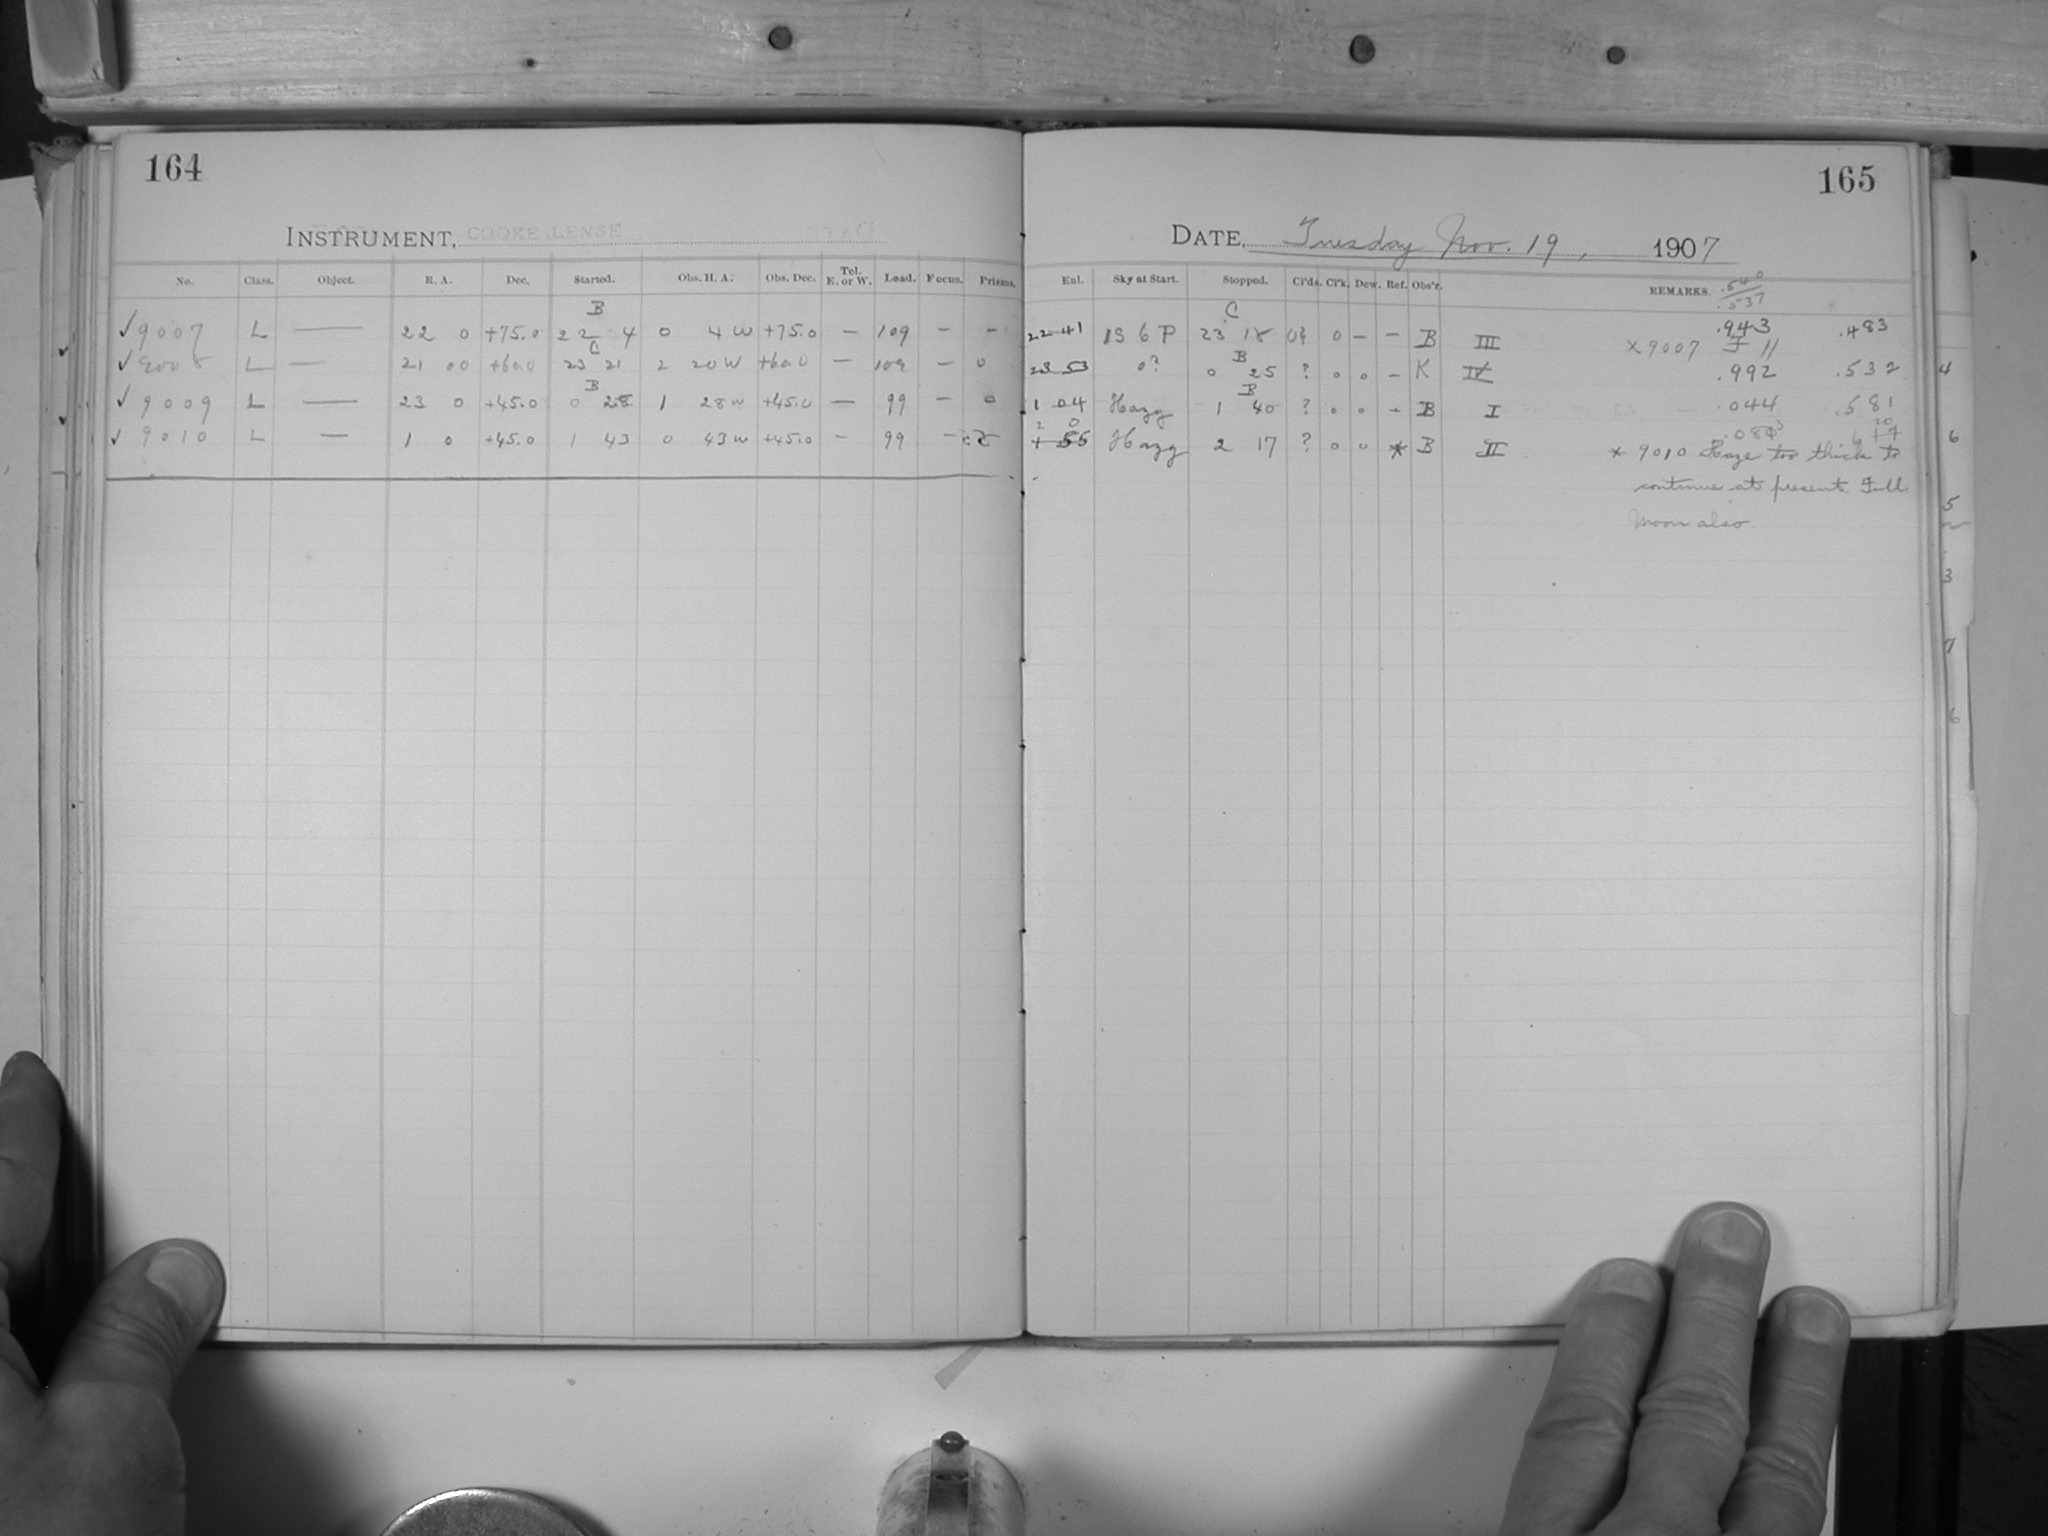 164
INSTRUMENT, COOKE LENSE
No. Class. Object. R. A. Dec. Started. Obs. H. A. Obs. Dec. Tel. E. or W. Lead. Focus. Prisms.
B
✓9007 L — 22 0 +75.0 22 4 0 4 W +75.0 — 109 — —
C
✓9008 L — 21 00 +60.0 23 21 2 20 W +60.0 — 109 — 0
B
✓9009 L — 23 0 +45.0 0 28 1 28 W +45.0 — 99 — 0
✓9010 L — 1 0 +45.0 1 43 0 43 W +45.0 — 99 —
165
DATE, Tuesday Nov. 19, 1907
Enl. Sky at Start. Stopped. Cl'ds. Cl'k. Dew. Ref. Obs'r. REMARKS. .540
.537
C
22 41 1S 6 P 23 18 0? 0 — — B III .943 .483
× 9007 J 11
23 53 0? 0 25 ? 0 0 — K IV .992 .532
B
1 04 Hazy 1 40 ? 0 0 — B I .044 .581
55 Hazy 2 17 ? 0 0 * B II
* 9010 Haze too thick to
continue at present. Full
Moon also
4
6
5
3
7
6